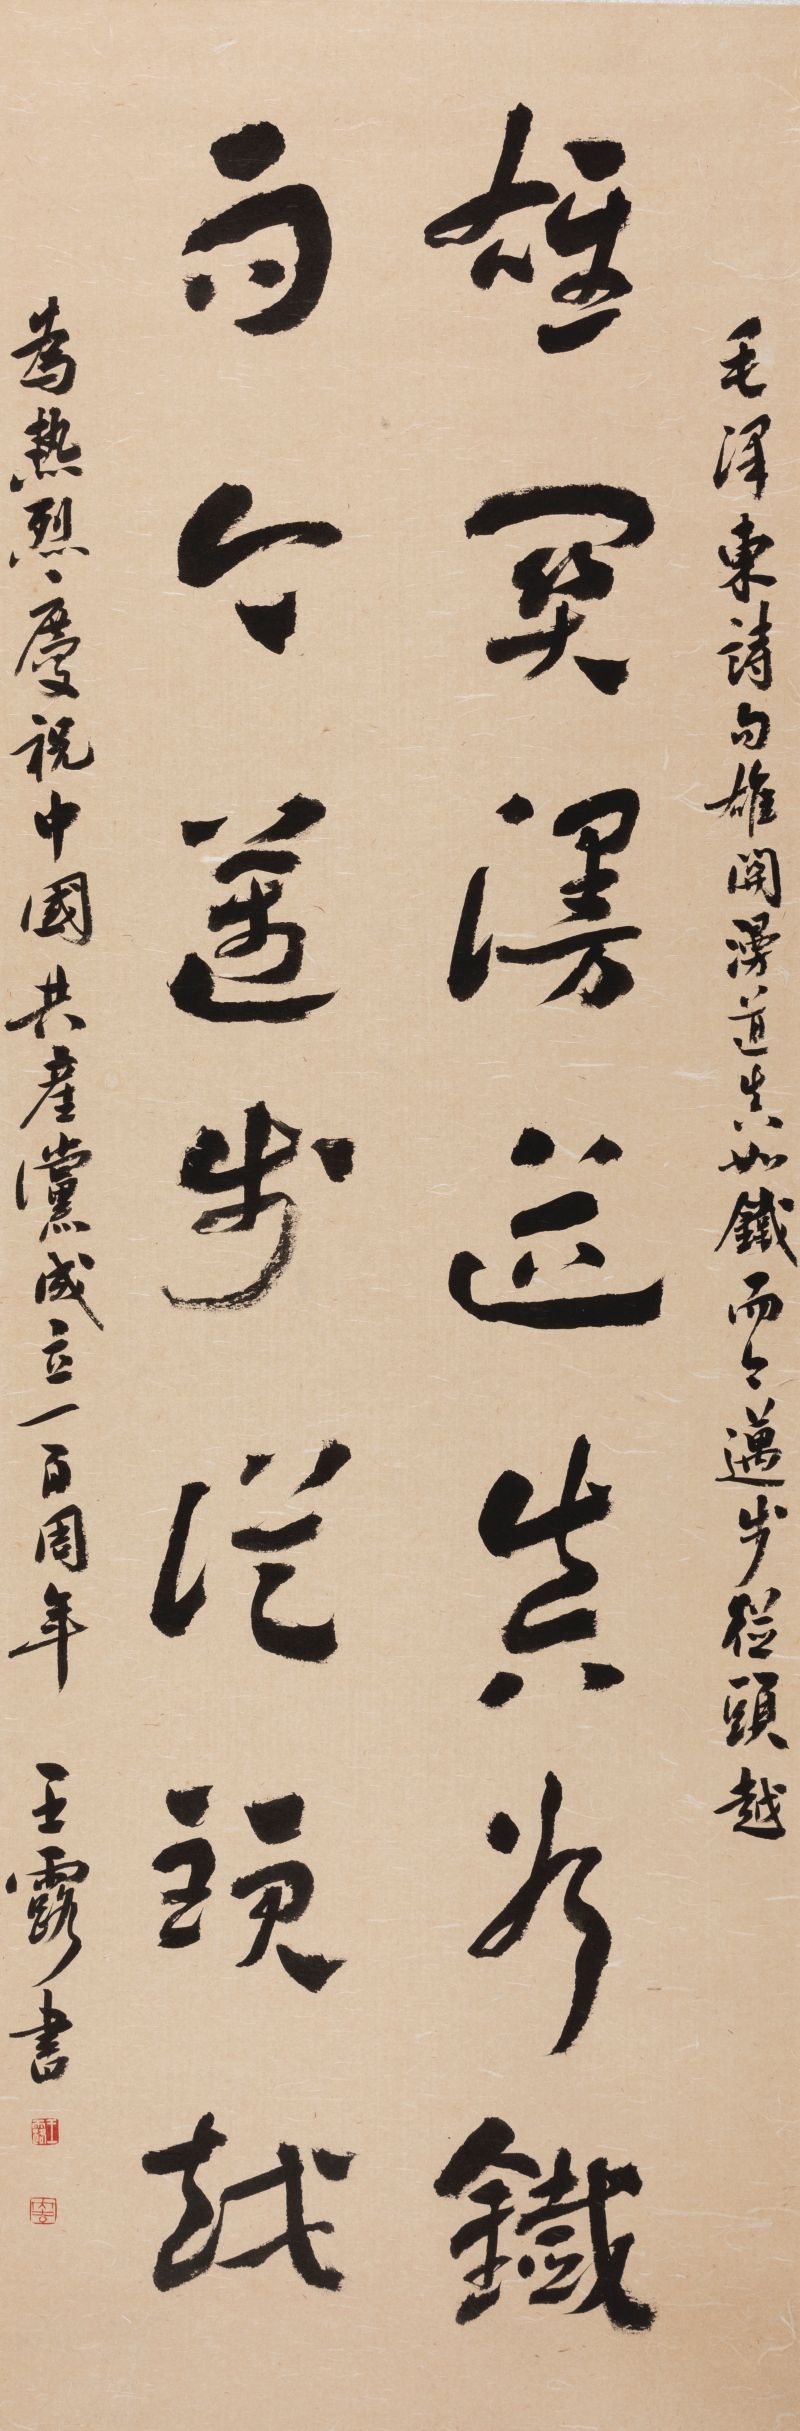 毛澤東詩句雄關漫道真如鐵而今邁步從頭越
雄關漫道真如鐵
而今邁步從頭越
為熱烈慶祝中國共產黨成立一百周年 王露書
王露